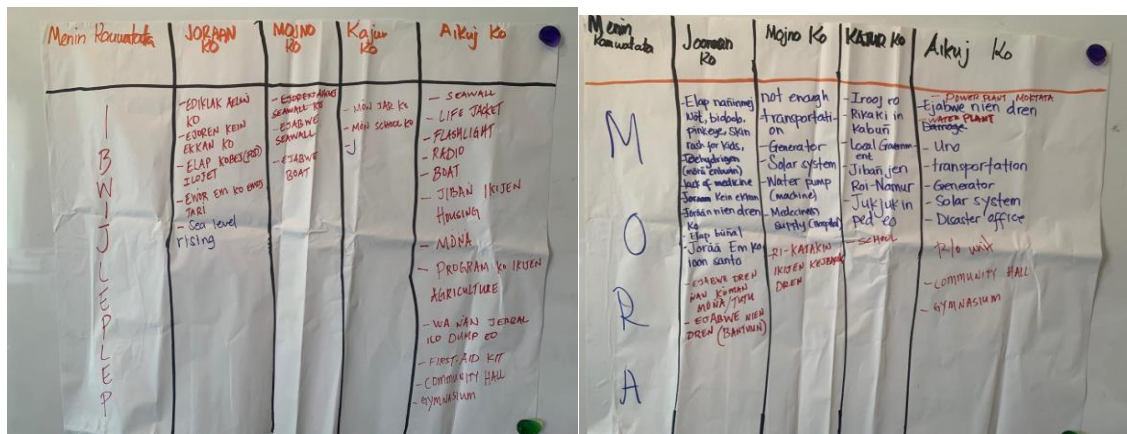 Menin Kauwatata
JORAAN
KO
MOJNO
KO
Kajur
KO
Aikuj Ko
I
B
W
I
J
L
E
P
L
E
P
- EDIKLAK ARIN
KO
- EJOREN KEIN
EKKAN KO
- ELAP KOBEJ
ILOJET
- EWOR EM KO
- Sea level
rising
SEAWALL KO
- EJABWE
SEAWALL
- EJABWE
BOAT
- MON JAR KO
- MON SCHOOL KO
- J
- SEAWALL
- LIFE JACKET
- FLASHLIGHT
- RADIO
- BOAT
- JIBAN IKIJEN
HOUSING
- MONA
- PROGRAM KO IKIJEN
AGRICULTURE
- WA NAN JERBAL
ILO DUMP EO
- FIRST-AID KIT
- COMMUNITY HALL
- GYMNASIUM
Menin
Kauwatata
Jooraan
Ko
Mojno Ko
KAJUR KO
Aikuj Ko
M
O
R
A
- Elap nañinmej
pinkeye, skin
rash for kids,
lack of medicine
Joraan Kein ekkan
Jorään nien dren
Ko
- Elap buñal
- Jorää Em ko
ioon santo
- EJABWE DREN
NAN KOMAN
MONA/TUTU
- EJABWE NIEN
DREN
not enough
transportati-
on
- Generator
- Solar system
- Water pump
(machine)
- Medecines
supply (hospital)
- RI-KATAKIN
IKIJEN
DREN
- Irooj ro
- Rikaki in
kabuñ
- Local Government
- Jiban jen
Roi-Namur
- Jukjukin
ped eo
- SCHOOL
- POWER PLANT MOKTATA
- Ejabwe nien dren
WATER PLANT
- Uno
- transportation
- Generator
- Solar system
- Disaster office
R/O unit
- COMMUNITY HALL
- GYMNASIUM